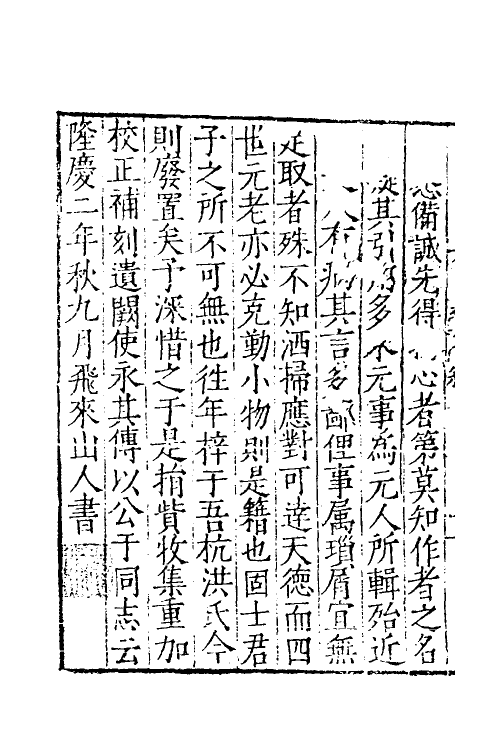 悉備誠先得 心者第莫知作者之名
其引 多 元事為元人所輯殆近
人有病其言多鄙俚事属瑣屑宜無
足取者殊不知洒掃應對可逹天德而四
世元老亦必克勤小物則是籍也固士君
子之所不可無也往年梓于吾杭洪氏今
則廢置矣予深惜之于是捐貲收集重加
校正補刻遺闕使永其傳以公于同志云
隆慶二年秋九月飛來山人書